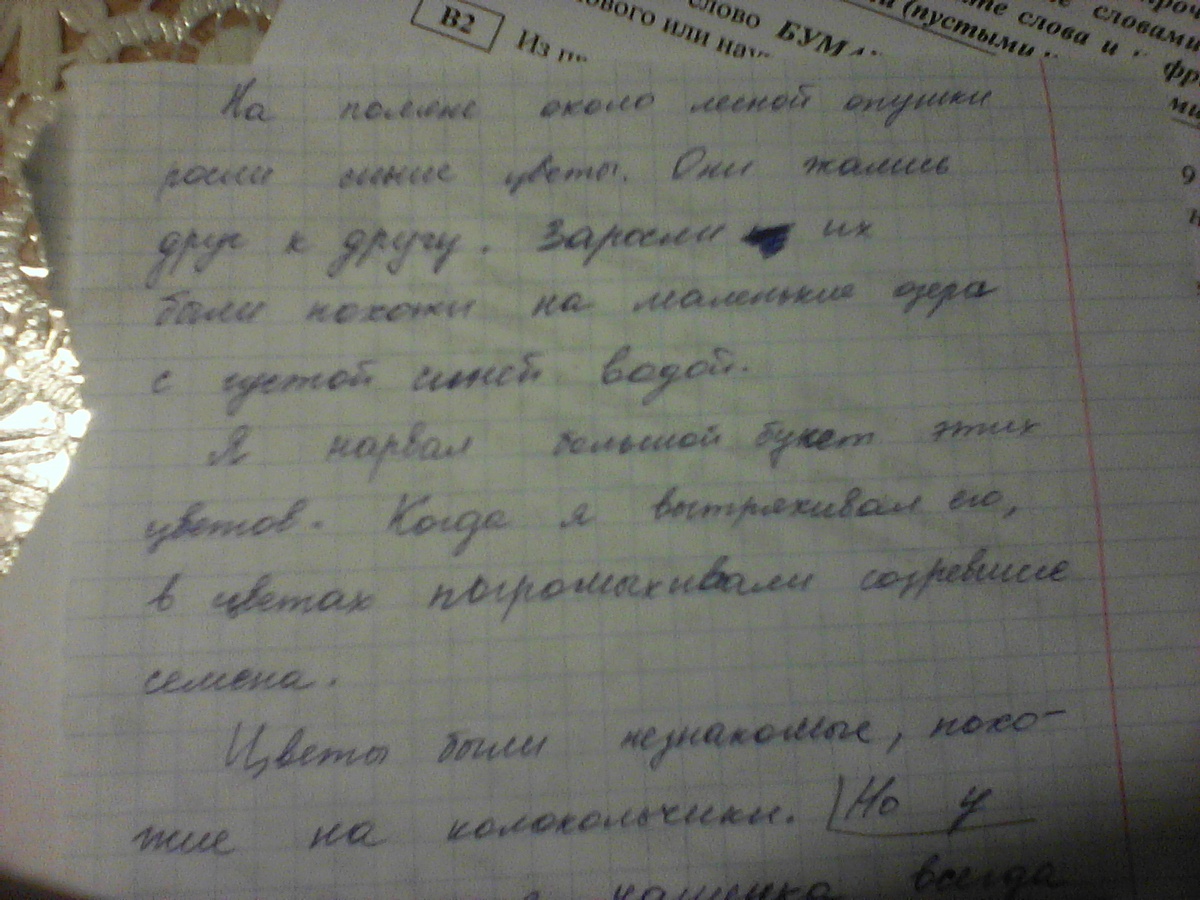 В2
слово БУМ
ового или нау
Из
(пустыми
те слова и
словами
фр
ми
9
На поляне около лесной опушки
росли синие цветы. Они жались
друг к другу. Заросли их
были похожи на маленькие озера
с густой синей водой.
Я нарвал большой букет этих
цветов. Когда я вытряхивал его,
в цветах погромыхивали созревшие
семена.
Цветы были незнакомые, похо-
жие на колокольчики. Но у
чашечка всегда